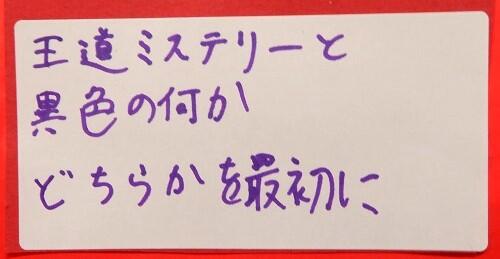 王道ミステリーと
異色の何か
どちらかを最初に